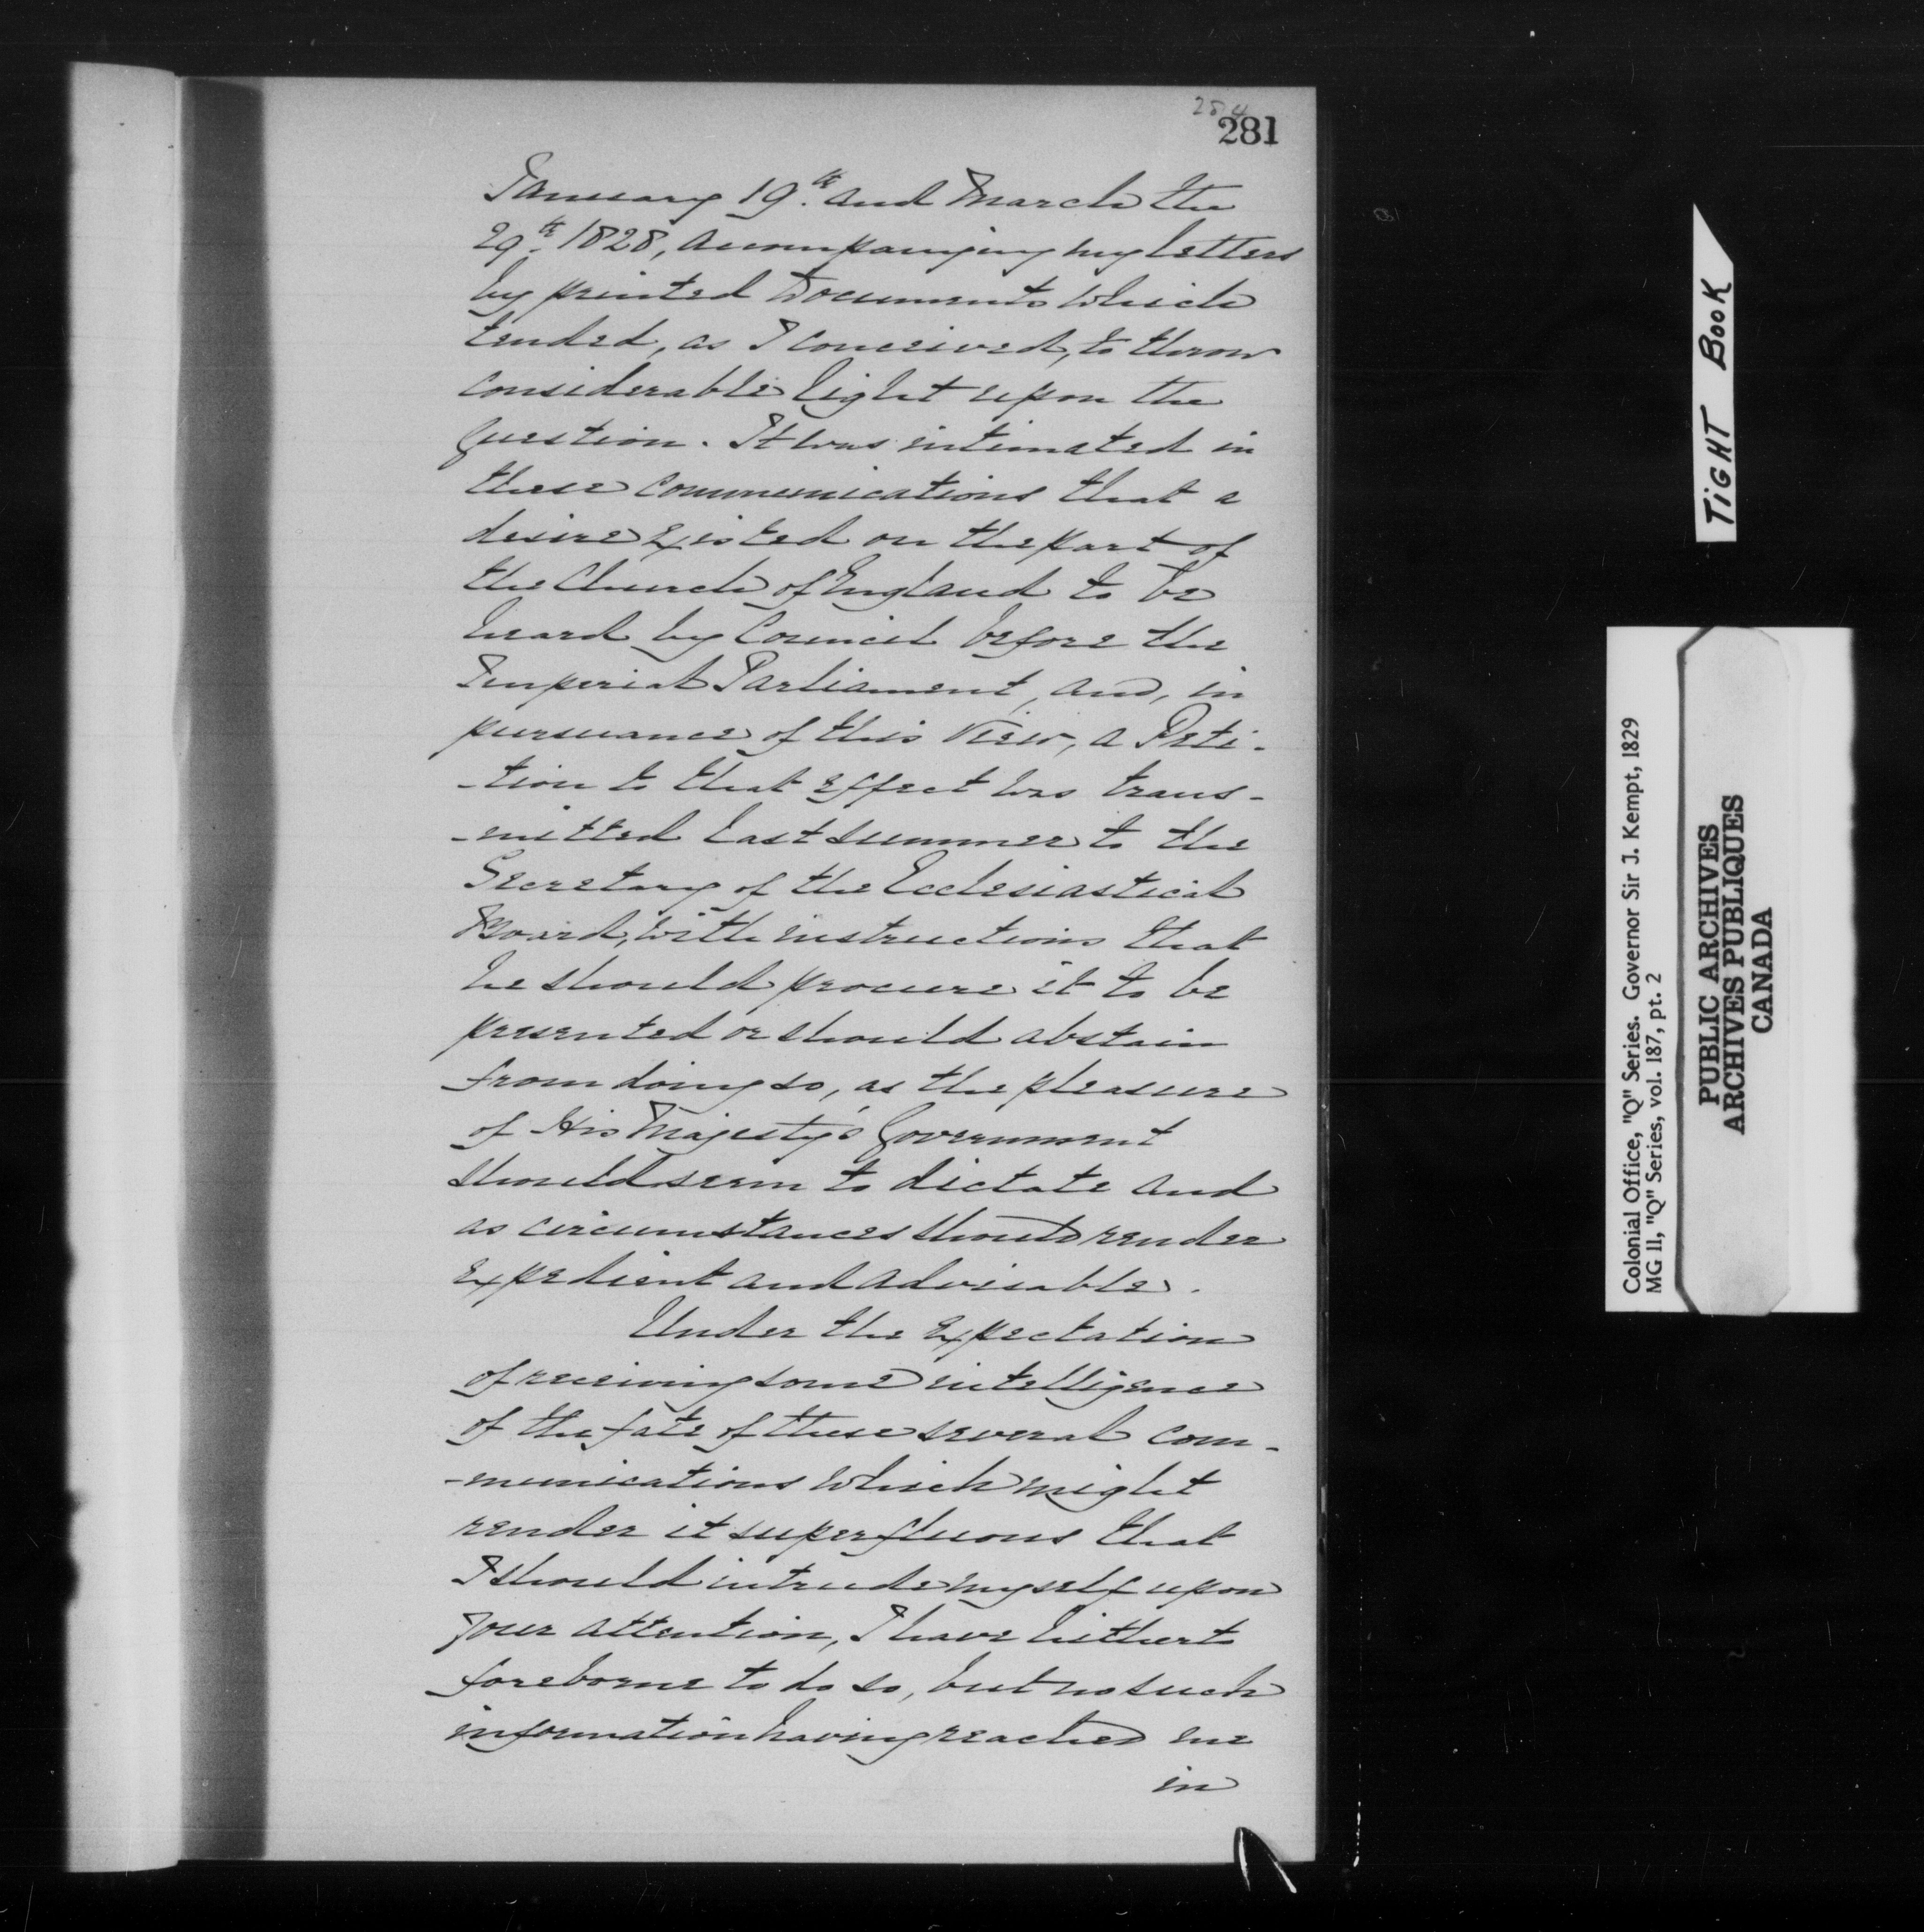 284
281
January 19th. and March the
29th. 1828, accompanying my letters
by printed Documents which
tended, as I conceived, to throw
considerable light upon the
question. It was intimated in
these communications that a
desire existed on the part of
the Church of England to be
heard by Council before the
Imperial Parliament, and, in
pursuance of this View, a Peti-
-tion to that effect was trans-
-mitted last summer to the
Secretary of the Ecclesiastical
Board, with instructions that
he should procure it to be
presented or should abstain
from doing so, as the pleasure
of His Majesty's Government
should seem to dictate and
as circumstances should render
expedient and advisable.
Under the expectation
of receiving some intelligence
of the fate of these several com-
-munications which might
render it superfluous that
I should intrude myself upon
your attention, I have hitherto
foreborne to do so, but no such
information having reached me
in
TIGHT BOOK
Colonial Office, "Q" Series. Governor Sir J. Kempt, 1829
MG 11, "Q" Series, vol. 187, pt. 2
PUBLIC ARCHIVES
ARCHIVES PUBLIQUES
CANADA